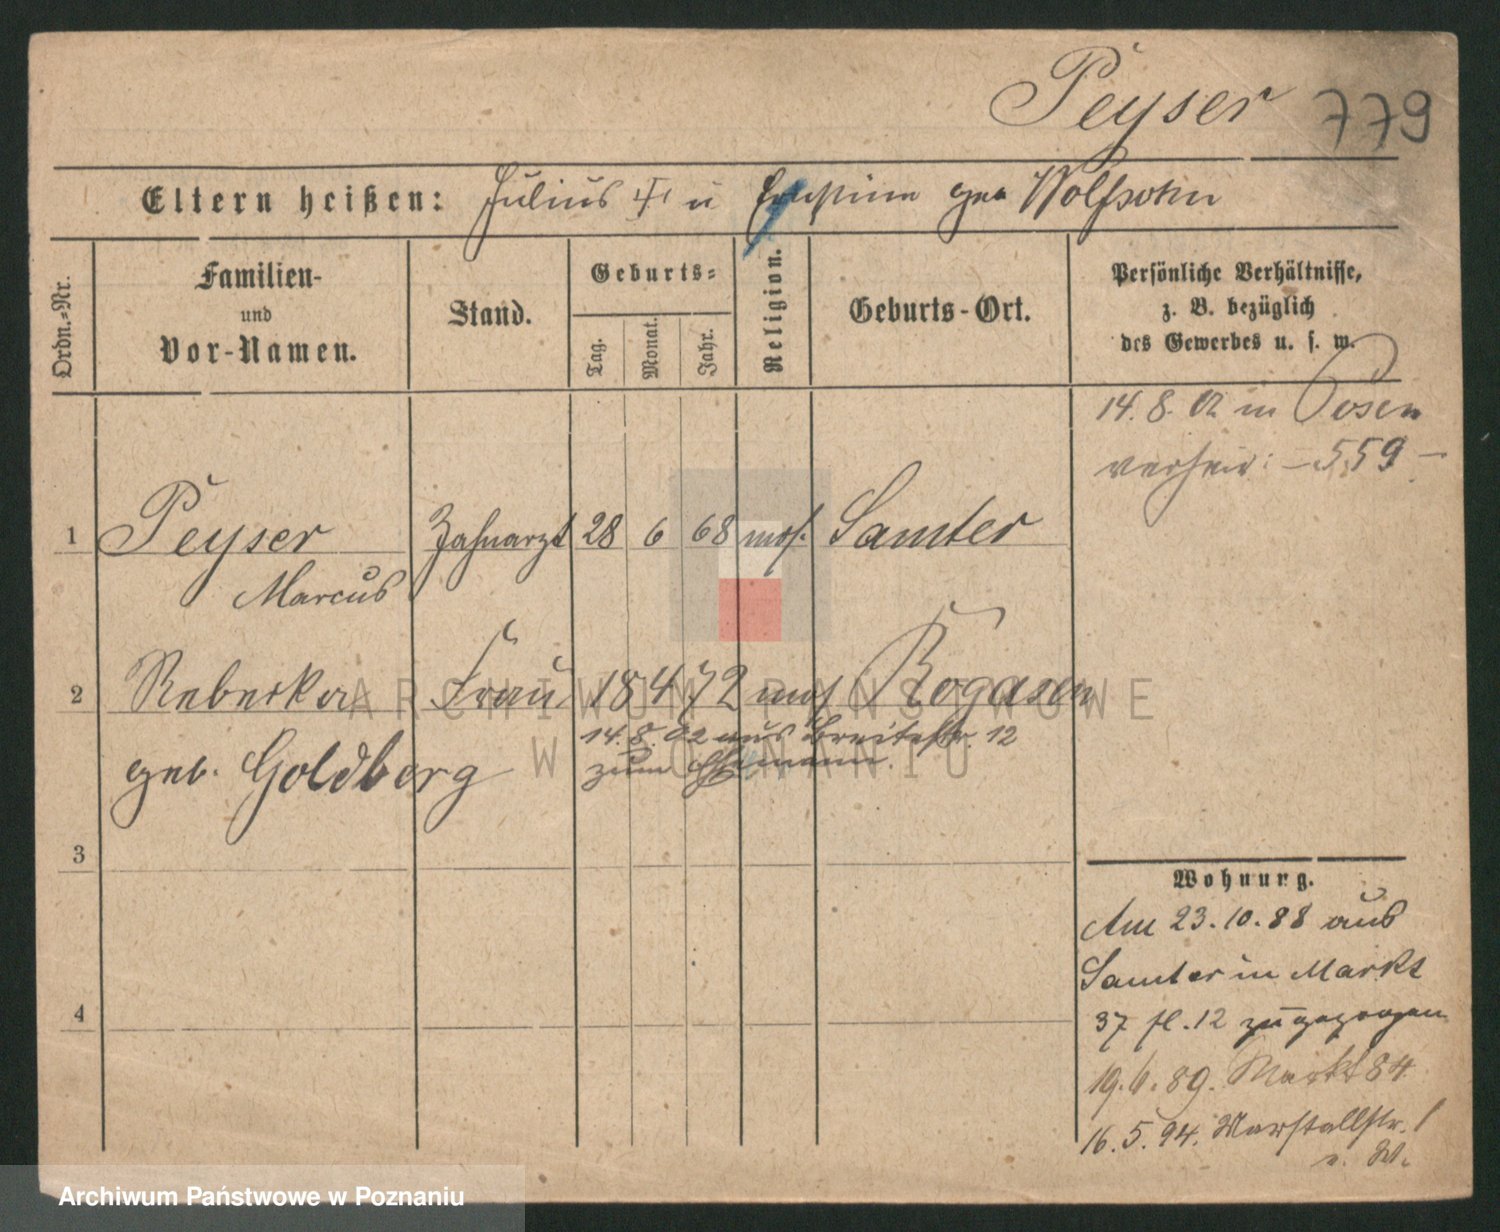 Peyser 779
Eltern heißen: Julius u geb Wolfsohn
Ordn.=Nr.
Familien-
und
Vor-Namen.
Stand.
Geburts=
Tag.
Monat.
Jahr.
Religion.
Geburts-Ort.
Persönliche Verhältnisse,
z. B. bezüglich
des Gewerbes u. s. w.
14. 8. 02 in Posen
verheir: – 559 –
1 Peyser Zahnarzt 28 6 68 mos. Samter
Marcus
2 Rebecka Frau 18 4 72 mos Rogasen
14. 8. 02 aus Breitestr. 12
zum Ehemann.
geb. Goldberg
3
4
Wohnung.
Am 23.10.88 aus
Samter in Markt
37 fl. 12 zugezogen
19.6.89. Markt 84
16.5.94. Marstallstr. 1
v. W.
ARCHIWUM PAŃSTWOWE
W POZNANIU
Archiwum Państwowe w Poznaniu